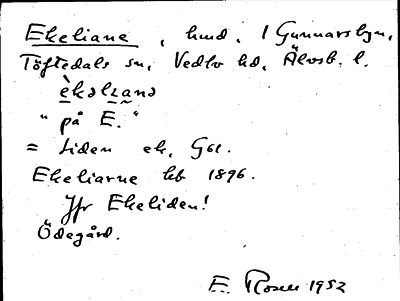 Ekeliane, hmd. i Gunnarsbyn,
Töftedals sn, Vedbo hd, Älvsb. l.
"på E."
= Liden ek. GSE.
Ekeliarne kb 1896.
Jfr Ekeliden!
Ödegård.
E. Rosen 1952